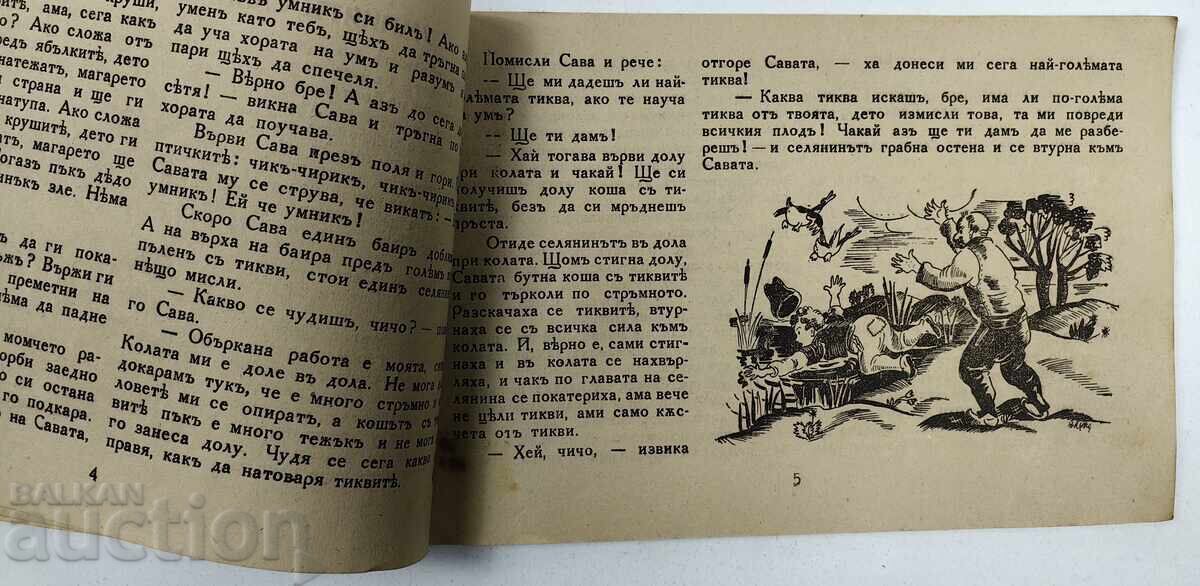 круши,
итѣ, ама, сега какъ
о? Ако сложа отъ
редъ ябълкитѣ, дето
натежатъ, магарето
и страна и ще ги
натупа. Ако сложа
крушитѣ, дето ги
атъ, магарето ще
огазъ пъкъ дѣдо
инъкъ зле. Нѣма
ъ да ги пока-
ъжъ? Вържи ги
преметни на
ѣма да падне
момчето ра-
орби заедно
о си остана
го подкара.
на Савата,
4
умникъ си билъ! Ако
уменъ като тебъ, щѣхъ да тръгна
да уча хората на умъ и разумъ
пари щѣхъ да спечеля.
— Вѣрно бре! А азъ до сега
сѣтя! — викна Сава и тръгна по
хората да поучава.
Върви Сава презъ поля и гори,
птичкитѣ: чикъ-чирикъ, чикъ-чирикъ
Савата му се струва, че викатъ: —
умникъ! Ей че умникъ!
Скоро Сава единъ баиръ
А на върха на баира предъ голѣмъ
пъленъ съ тикви, стои единъ
нѣщо мисли.
— Какво се чудишъ, чичо? —
го Сава.
— Объркана работа е моята,
Колата ми е доле въ дола. Не мога
докарамъ тукъ, че е много стръмно
ловетѣ ми се опиратъ, а кошътъ съ
витѣ пъкъ е много тежъкъ и не мога
го занеса долу. Чудя се сега какво
правя, какъ да натоваря тиквитѣ.
Помисли Сава и рече:
— Ще ми дадешъ ли най-
лѣмата тиква, ако те науча
умъ?
— Ще ти дамъ!
— Хай тогава върви долу
ри колата и чакай! Ще си
олучишъ долу коша съ ти-
витѣ, безъ да си мръднешъ
ръста.
Отиде селянинътъ въ дола
при колата. Щомъ стигна долу,
Савата бутна коша съ тиквитѣ
и го търколи по стръмното.
Разскачаха се тиквитѣ, втур-
наха се съ всичка сила къмъ
колата. И, вѣрно е, сами стиг-
наха и въ колата се нахвър-
ляха, и чакъ по главата на се-
лянина се покатериха, ама вече
не цѣли тикви, ами само кѫс-
чета отъ тикви.
— Хей, чичо, — извика
отгоре Савата, — ха донеси ми сега най-голѣмата
тиква!
— Каква тиква искашъ, бре, има ли по-голѣма
тиква отъ твоята, дето измисли това, та ми повреди
всичкия плодъ! Чакай азъ ще ти дамъ да ме разбе-
решъ! — и селянинътъ грабна остена и се втурна къмъ
Савата.
5
BALKAN
auction